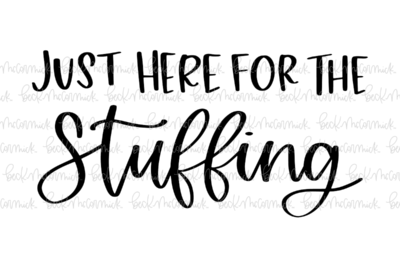 JUST HERE FOR THE
Stuffing